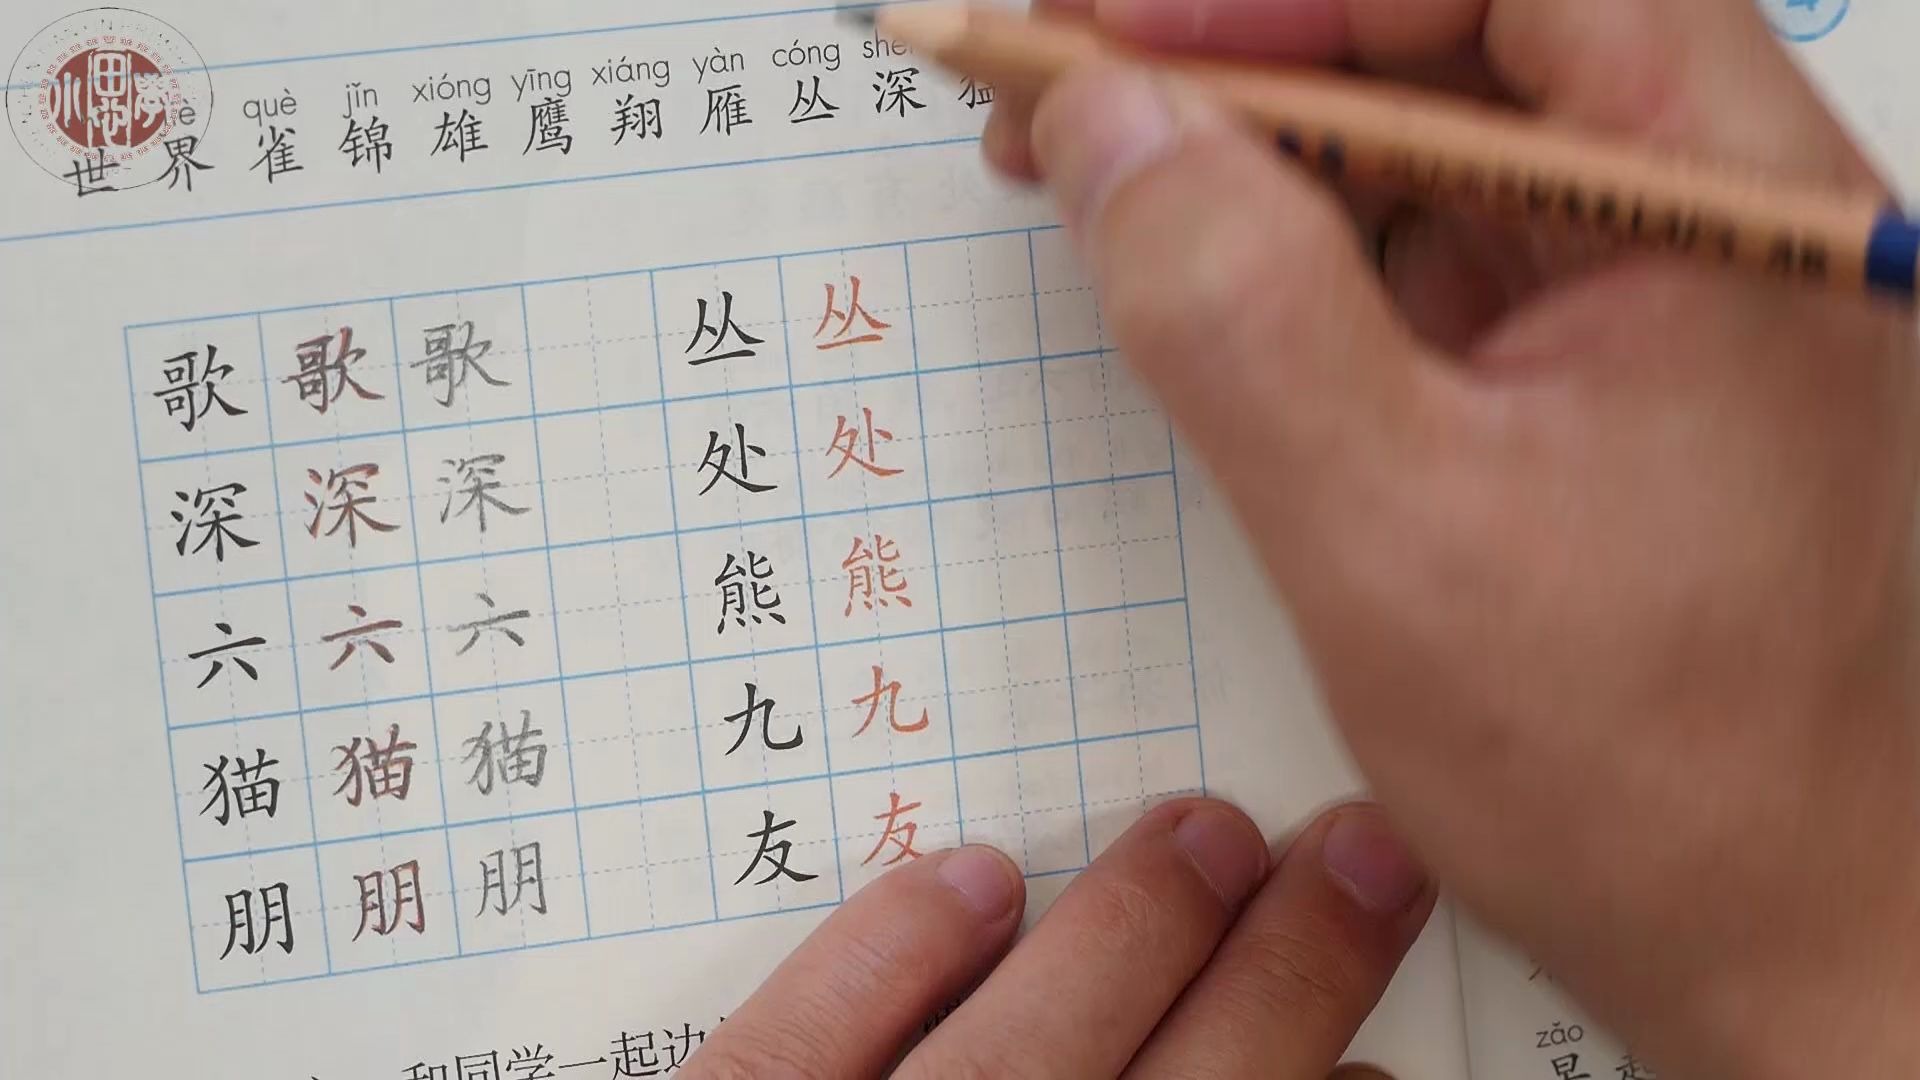 què jǐn xióng yīng xiáng yàn cóng
世 界 雀 锦 雄 鹰 翔 雁 丛 深 猛
歌 歌 歌 丛 丛
深 深 深 处 处
六 六 六 熊 熊
猫 猫 猫 九 九
朋 朋 朋 友 友
和同学一起边
zǎo
早 起